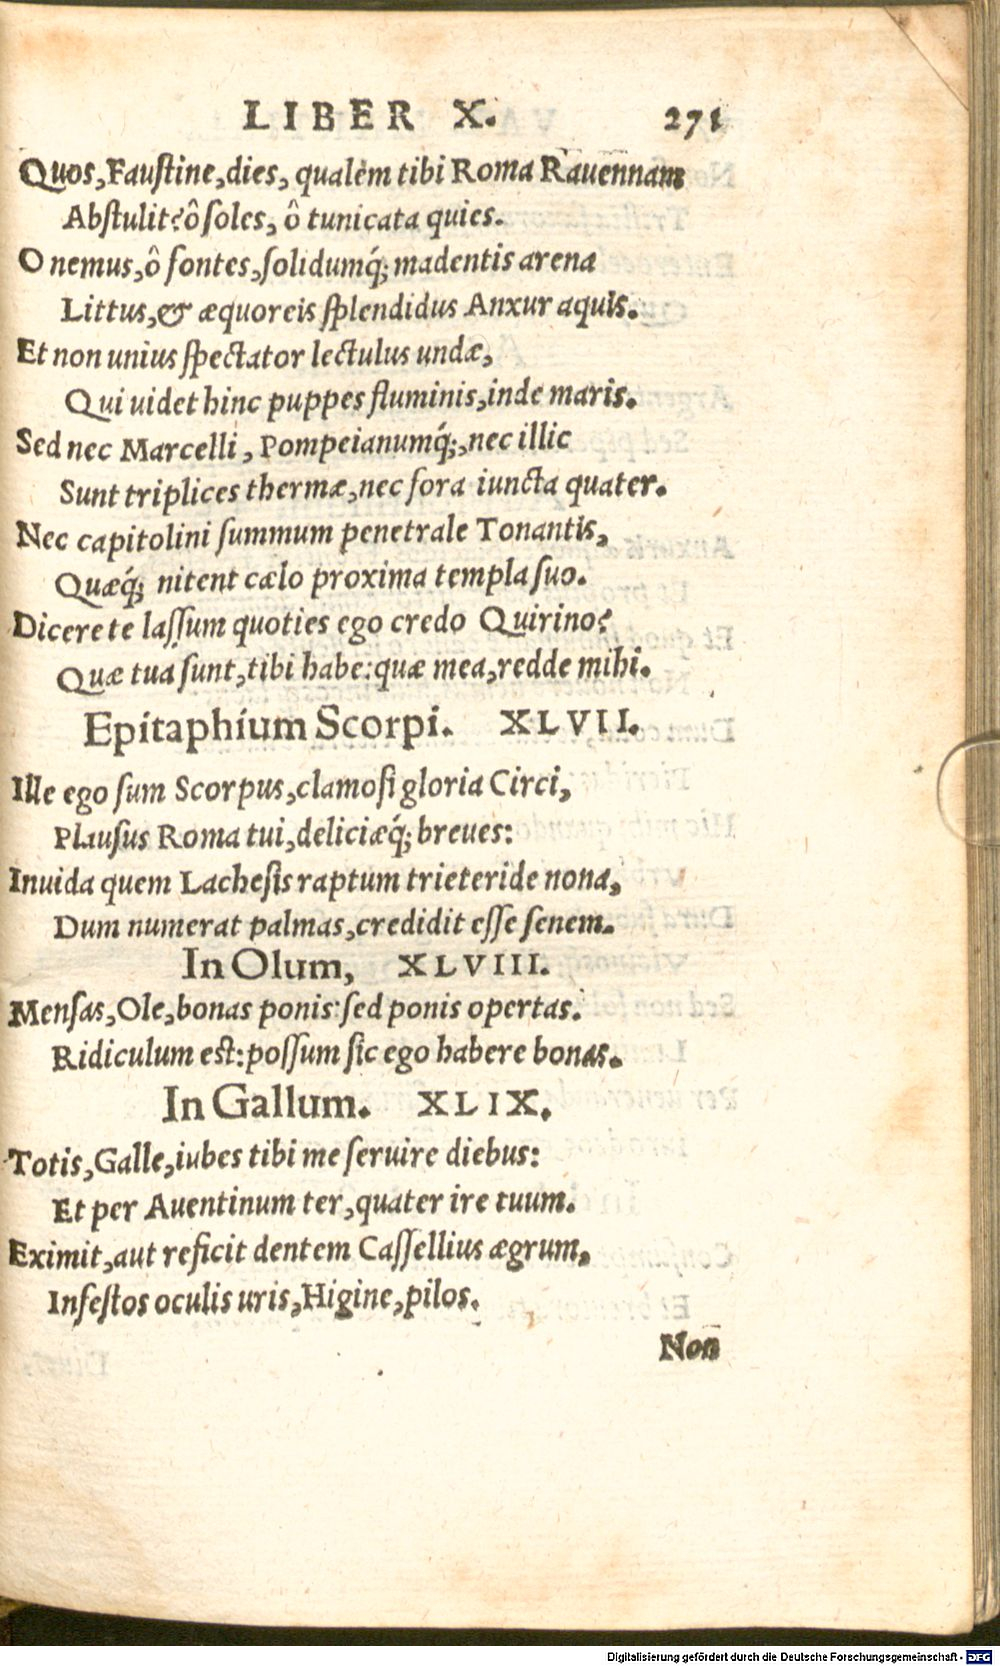 LIBER X. 271
Quos, Faustine, dies, qualem tibi Roma Rauennam
Abstulit? ô soles, ô tunicata quies.
O nemus, ô fontes, solidumq́; madentis arena
Littus, & æquoreis splendidus Anxur aquis.
Et non unius spectator lectulus undæ,
Qui uidet hinc puppes fluminis, inde maris.
Sed nec Marcelli, Pompeianumq́;, nec illic
Sunt triplices thermæ, nec fora iuncta quater.
Nec capitolini summum penetrale Tonantis,
Quæq́; nitent cælo proxima templa suo.
Dicere te lassum quoties ego credo Quirino?
Quæ tua sunt, tibi habe: quæ mea, redde mihi.
Epitaphium Scorpi. XLVII.
Ille ego sum Scorpus, clamosi gloria Circi,
Plausus Roma tui, deliciæq́; breues:
Inuida quem Lachesis raptum trieteride nona,
Dum numerat palmas, credidit esse senem.
In Olum, XLVIII.
Mensas, Ole, bonas ponis: sed ponis opertas.
Ridiculum est: possum sic ego habere bonas.
In Gallum. XLIX.
Totis, Galle, iubes tibi me seruire diebus:
Et per Auentinum ter, quater ire tuum.
Eximit, aut reficit dentem Cassellius ægrum,
Infestos oculis uris, Higine, pilos.
Non
Digitalisierung gefördert durch die Deutsche Forschungsgemeinschaft - DFG